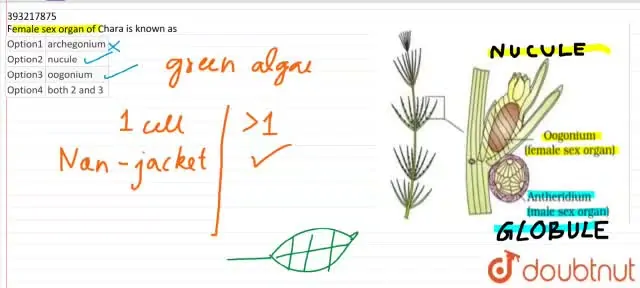 393217875
Female sex organ of Chara is known as
Option1 archegonium
Option2 nucule
Option3 oogonium
Option4 both 2 and 3
green algae
1 cell >1
Nan-jacket
NUCULE
Oogonium
(female sex organ)
Antheridium
(male sex organ)
GLOBULE
doubtnut